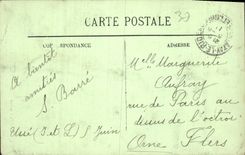 CARTE POSTALE
CORRESPONDANCE
ADRESSE
A bientôt
amitiés
S. Barré
Ussé (I. et L.) 5 Juin
Melle Marguerite
Aufray
rue de Paris au
dessus de l'octroi
Orne Flers